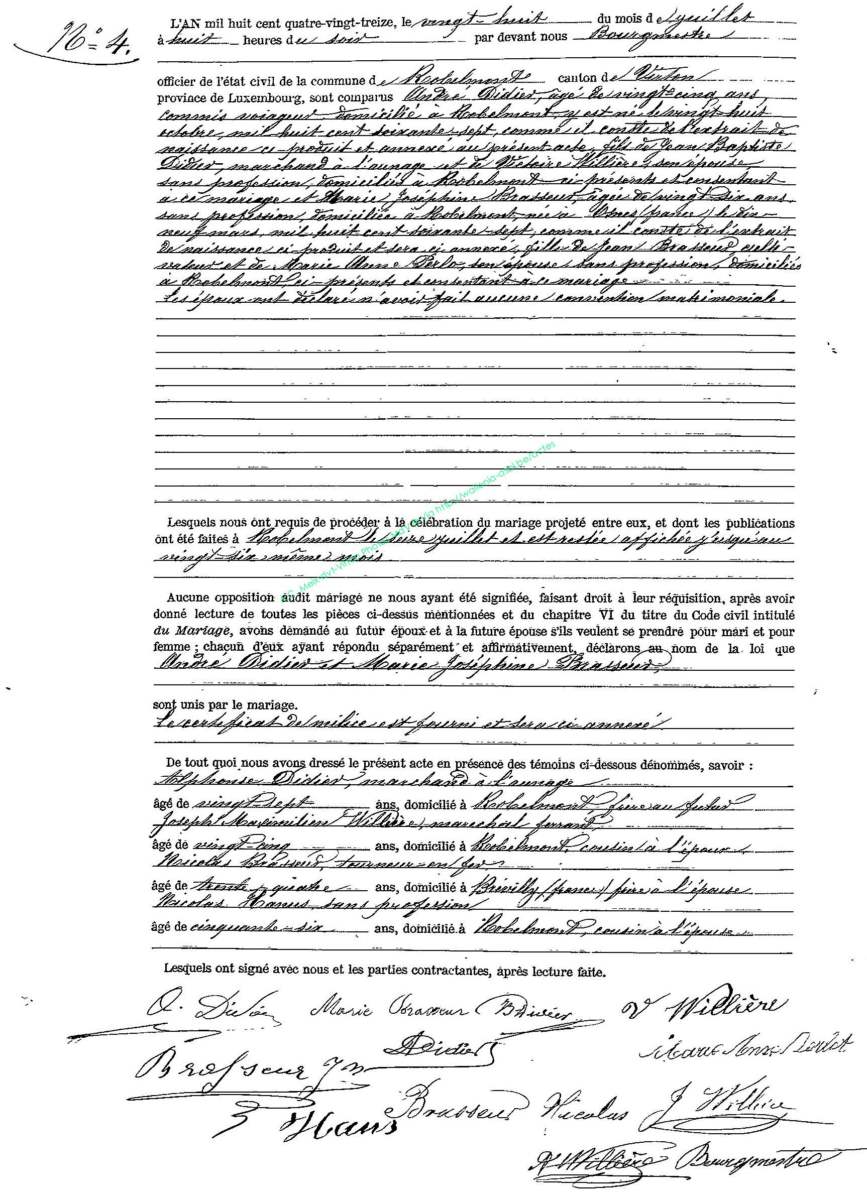 N° 4.
L'AN mil huit cent quatre-vingt-treize, le vingt-huit du mois de juillet
à huit heures du soir par devant nous Bourgmestre
officier de l'état civil de la commune de Robelmont canton de Virton
province de Luxembourg, sont comparus André Didier, âgé de vingt cinq ans,
commis voiageur domicilié à Robelmont, y est né le vingt huit
octobre, mil huit cent soixante-sept, comme il conste de l'extrait de
naissance ci produit et annexé au présent acte, fils de Jean Baptiste
Didier, marchand à l'aunage et de Victoire Willière, son épouse,
sans profession, domiciliés à Robelmont ci présents et consentant
à ce mariage et Marie Joséphine Brasseur, âgée de vingt six ans
sans profession, domiciliée à Robelmont, née à Osnes (france) le dix-
neuf mars, mil huit cent soixante-sept, comme il conste de l'extrait
de naissance ci produit et sera ci annexé, fille de Jean Brasseur, culti-
vateur et de Marie Anne son épouse sans profession, domiciliés
à Robelmont, ci-présents et consentant à ce mariage
Les époux ont déclaré n'avoir fait aucune convention matrimoniale.
Lesquels nous ont requis de procéder à la célébration du mariage projeté entre eux, et dont les publications
ont été faites à Robelmont le seize juillet et est restée affichée jusqu'au
vingt-six même mois
Aucune opposition audit mariage ne nous ayant été signifiée, faisant droit à leur réquisition, après avoir
donné lecture de toutes les pièces ci-dessus mentionnées et du chapitre VI du titre du Code civil intitulé
du Mariage, avons demandé au futur époux et à la future épouse s'ils veulent se prendre pour mari et pour
femme ; chacun d'eux ayant répondu séparément et affirmativement, déclarons au nom de la loi que
André Didier et Marie Joséphine Brasseur,
sont unis par le mariage.
Le certificat de milice est fourni et sera ci annexé
De tout quoi nous avons dressé le présent acte en présence des témoins ci-dessous dénommés, savoir :
Alphonse Didier, marchand à l'aunage
âgé de vingt-sept ans, domicilié à Robelmont, frère au futur
Joseph Maximilien Willière, marechal ferrant
âgé de vingt-cinq ans, domicilié à Robelmont, cousin à l'époux
Nicolas Brasseur, tourneur en fer
âgé de trente quatre ans, domicilié à Brévilly (france) frère à l'épouse
Nicolas Hanus sans profession
âgé de cinquante-six ans, domicilié à Robelmont, cousin à l'épouse
Lesquels ont signé avec nous et les parties contractantes, après lecture faite.
A. Didier Marie Brasseur Bdidier V Willière
ADidier Marie Anne
Brasseur Jn
Brasseur Nicolas J Willière
Hans
Willière Bourgmestre